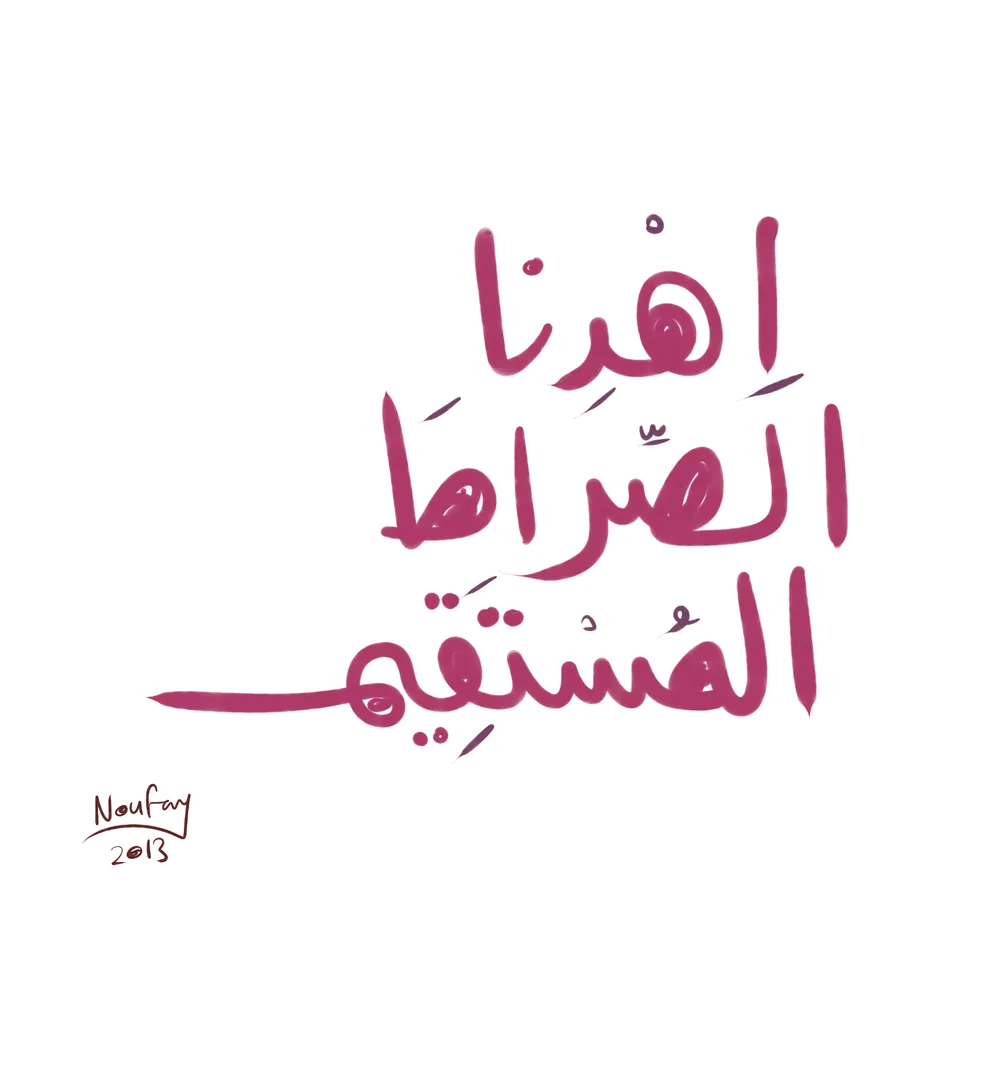 اِهْدِنا
الصِّرَاطَ
المُسْتَقِيم
Noufay
2013